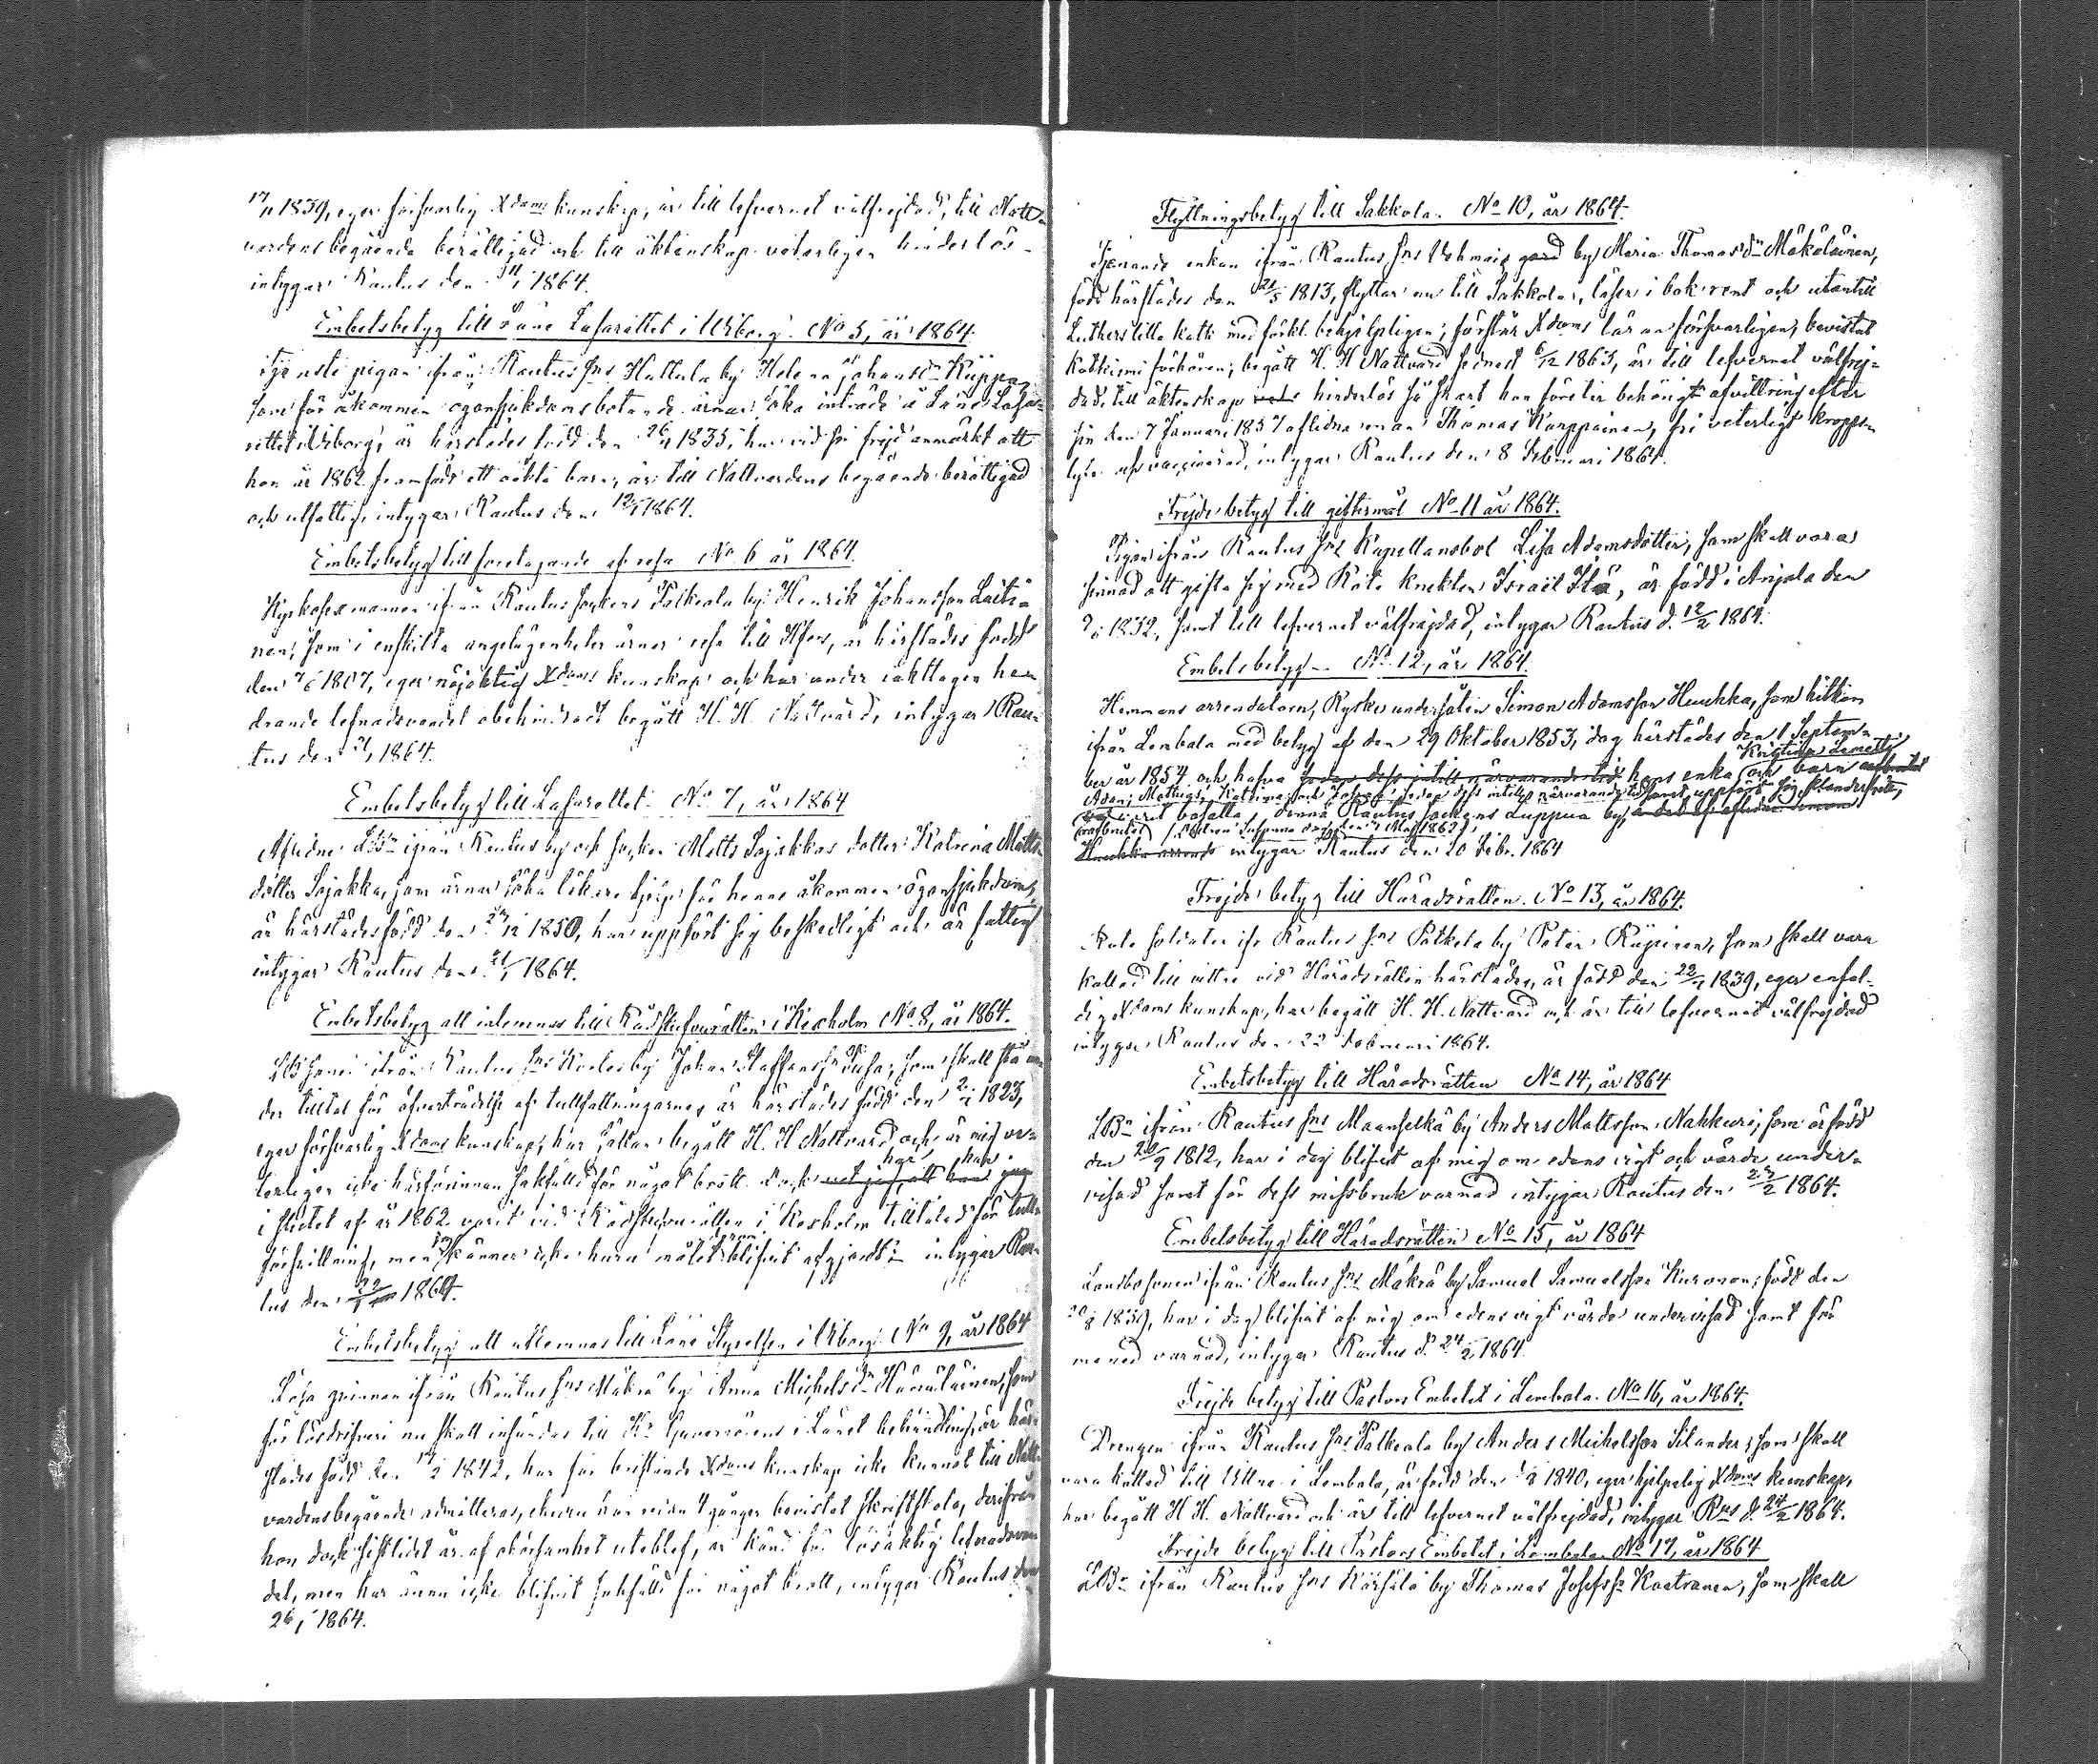 17/11 1839, eger försvarlig Xdoms kunskap, är till lefvernet välfrejdad, till Natt-
vardens begående berättigad och till äktenskap veterligen hinderlös
intygar Rautus den 1864.
Embetsbetyg till Läne Lasarettet i Wiborg. No 5, år 1864.
Tjenste pigan ifrån Rautus Sns Huttula by Helena Johansdr
som för åkommen ögonsjukdoms botande ärnar söka inträde i Läns Lasa-
rettet i Wiborg, är härstädes född den 26/4 1835, har vid sin frejd anmärkt att
hon år 1862 framfödt ett oäkta barn, är till Nattvardens begående berättigad
och utfattig, intygar Rautus den 12/1 1864.
Embetsbetyg till företagande af resa No 6 år 1864.
mannen ifrån Rautus Sockens Palkeala by Henrik Johansson Laiti-
nen, som i enskilta angelägenheter ärnar resa till Hfors, är härstädes född
den 7/6 1807, eger nöjaktig Xdoms kunskap och har under iakttagen
lefnadsvandel obehindradt begått H. H. Nattvard, intygar Rau-
tus den 1864.
Embetsbetyg till Lasarettet. No 7, år 1864
Aflidne ifrån Rautus by och socken Matts Sojakkas dotter Katrina Matts-
dotter Sojakka, som ärnar söka läkare hjelp för henne åkommen ögonsjukdom,
är härstädes född den 1850, har uppfört sig beskedligt och är fattig
intygar Rautus den 21/1 1864.
Embetsbetyg att inlemnas till Rådstufvurätten i Kexholm No 8, år 1864.
ifrån Rautus Sns by Johan Staffansson som skall stå un-
der tilltal för öfverträdelse af tullfattningarne, är härstädes född den 1823,
eger försvarlig Xdoms kunskap, har sällan begått H. H. Nattvard och är mig ve-
terligen icke härförinnan sakfälld för något brott. Dock har han
i slutet af år 1862 varit vid Rådstufvurätten i Kexholm tilltalad för tull-
försnillning, men jag känner icke huru målet blifvit afgjordt intygar Rau-
tus den 1864.
Embetsbetyg att utlemnas till Läne Styrelsen i Wiborg No 9, år 1864
Lösa qvinnan ifrån Rautus Sns Mäkrä by Anna Michelsdr Hämäläinen, som
för lösdrifveri nu skall insändas till Hr Guvernörens i Länet behandling, är här-
städes född den 1842, har för bristande Xdoms kunskap icke kunnat till Natt-
vardens begående admitteras, churu hon redan 4 gånger bevistat skriftskola, derifrån
hon dock sistlidet år af olörsamhet uteblef, är känd för lösaktig lefnadsvan-
del, men har ännu icke blifvit sakfälld för något brott, intygar Rautus den
26/1 1864.
Flyttningsbetyg till Sakkola. No 10, år 1864.
Tjenande enkan ifrån Rautus Sns Wehmais by Maria Thomasdr Mäkeläinen,
född härstädes den 21/5 1813, flyttar nu till Sakkola, läser i bok rent och utantill
Luthers lilla Katk med förkl. behjelpligen, förstår Xdoms läran försvarligen, bevistat
Katkismi förhören, begått H. H. Nattvard senast 6/12 1863, är till lefvernet välfrej-
dad, till äktenskap hinderlös så snart hon företer behörigt afvittring efter
sin den 7 Januari 1857 aflidna man Thomas Karppainen, fri veterligt kropps
lyte och vaccinerad, intygar Rautus den 8 Februari 1864.
Frejde betyg till giftermål No 11 år 1864.
Pigan ifrån Rautus Sns Kapellansbol Lisa Adamsdotter, som skall vara
sinnad att gifta sig med Rote knekten Israel är född i Anjala den
1832, samt till lefvernet välfrejdad, intygar Rautus d. 12/2 1864.
Embetsbetyg No 12, år 1864.
Hemmans arrendatorn, Ryske undersåten Simon Adamsson Huuhka, som hitkom
ifrån Lembala med betyg af den 29 Oktober 1853, dog härstädes den 1 Septem-
ber år 1854 och hafva sedan dess intill närvarande tid hans enka Kristina och barn oafbrutet
Adam, Mathias, Katrina och Josef sedan dess intill närvarande tid samt uppfört sig
oafbrutet varit bosatta denna Rautus Sockens Luppua by,
intygar Rautus den 20 Febr. 1864
Frejde betyg till Häradsrätten. No 13, år 1864.
Rote soldaten ifr Rautus Sns Palkela by Peter som skall vara
kallad till vittne vid Häradsrätten härstädes, är född den 22/4 1839, eger enfal-
dig Xdoms kunskap, har begått H. H. Nattvard och är till lefvernet välfrejdad
intygar Rautus den 22 Februari 1864.
Embetsbetyg till Häradsrätten No 14, år 1864
LBn ifrån Rautus Sns Maanselkä by Anders Mattsson Nahkuri, som är född
den 20/9 1812, har i dag blifvit af mig om edens vigt och värde under-
visad samt för dess missbruk varnad intygar Rautus den 1864.
Embetsbetyg till Häradsrätten No 15, år 1864
Landbosonen ifrån Rautus Sns Mäkrä by Samuel Samuelsson Kuronen, född den
1839, har i dag blifvit af mig om edens vigt värde undervisad samt för
mened varnad, intygar Rautus d. 24/2 1864.
Frejde betyg till Pastors Embetet i Lembala. No 16, år 1864.
Drengen ifrån Rautus Sns Palkeala by Anders Michelsson Silander, som skall
vara kallad till Vittne i Lembala, är född den 1840, eger hjelpelig Xdoms kunskap,
har begått H H. Nattvard och är till lefvernet välfrejdad, intygar Rns d. 24/2 1864.
Frejde betyg till Pastors Embetet i Lembala. No 17, år 1864
LBn ifrån Rautus Sns Körsälä by Thomas Josefsson Kaatranen, som skall